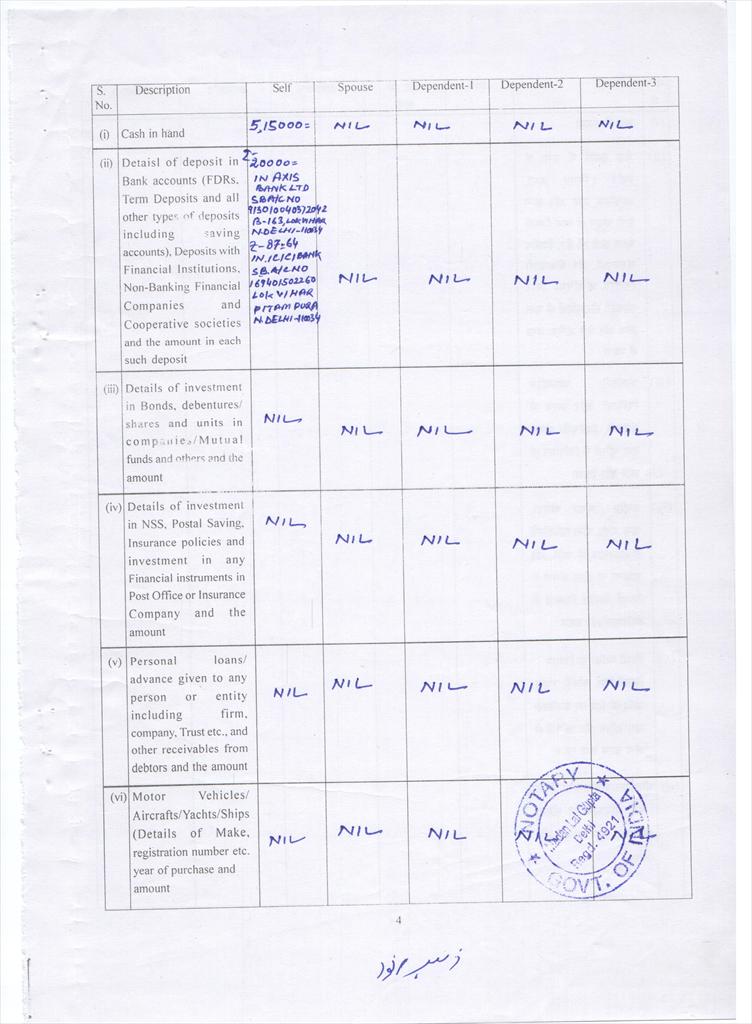 S. No. Description Self Spouse Dependent-1 Dependent-2 Dependent-3
(i) Cash in hand 5,15000= NIL NIL NIL NIL
(ii) Detaisl of deposit in
Bank accounts (FDRs,
Term Deposits and all
other types of deposits
including saving
accounts), Deposits with
Financial Institutions,
Non-Banking Financial
Companies and
Cooperative societies
and the amount in each
such deposit
20000=
IN AXIS
BANK LTD
SBA/CNO
913010040372042
B-163, LOKVIHAR
N.DELHI-110034
2-87=64
IN.ICICIBANK
SBA/CNO
169401502260
LOK VIHAR
PITAMPURA
N.DELHI-110034
NIL NIL NIL NIL
(iii) Details of investment
in Bonds, debentures/
shares and units in
companies/Mutual
funds and others and the
amount
NIL NIL NIL NIL NIL
(iv) Details of investment
in NSS, Postal Saving,
Insurance policies and
investment in any
Financial instruments in
Post Office or Insurance
Company and the
amount
NIL NIL NIL NIL NIL
(v) Personal loans/
advance given to any
person or entity
including firm,
company, Trust etc., and
other receivables from
debtors and the amount
NIL NIL NIL NIL NIL
(vi) Motor Vehicles/
Aircrafts/Yachts/Ships
(Details of Make,
registration number etc.
year of purchase and
amount
NIL NIL NIL NIL NIL
NOTARY
Madan Lal Gupta
Delhi
Regd. 4921
GOVT. OF INDIA
4